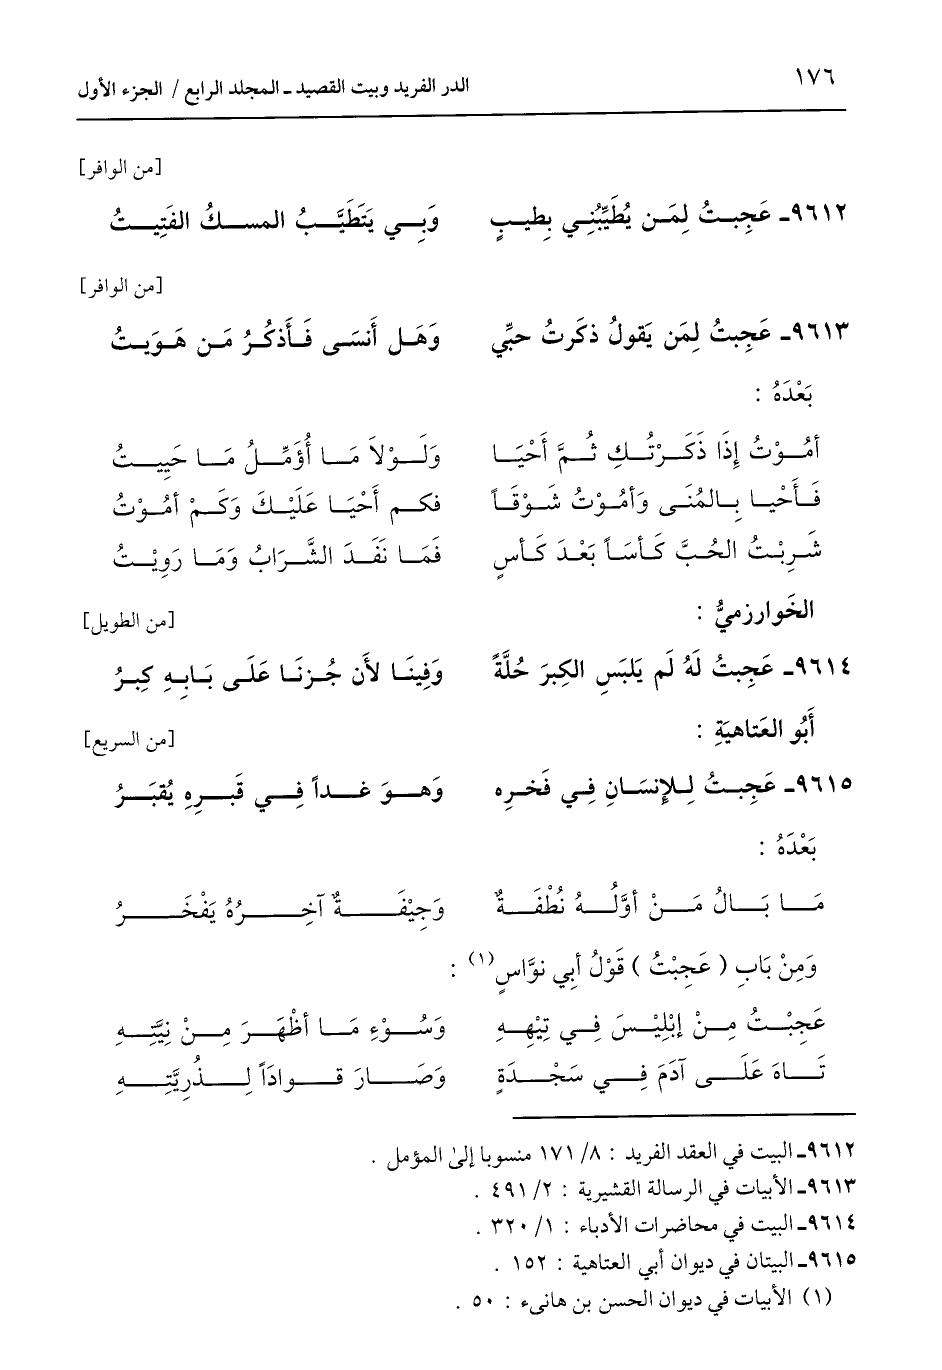 ١٧٦
الدر الفريد وبيت القصيد ـ المجلد الرابع / الجزء الأول
[من الوافر]
٩٦١٢ـ عَجِبتُ لِمَن يُطَيِّبُنِي بِطيبٍ وَبِي يَتَطَيَّبُ المسكُ الفَتِيتُ
[من الوافر]
٩٦١٣ـ عَجِبتُ لِمَن يَقولُ ذكَرتُ حبِّي وَهَل أَنسَى فَأَذكُرُ مَن هَوَيتُ
بَعْدَهُ :
أمُوْتُ إِذَا ذَكَرْتُكِ ثُمَّ أَحْيَا وَلَوْلاَ مَا أُؤَمِّلُ مَا حَيِيتُ
فَأَحْيا بِالمُنَى وَأمُوْتُ شَوْقَاً فكم أَحْيَا عَلَيْكَ وَكَمْ أمُوْتُ
شَرِبْتُ الحُبَّ كَأسَاً بَعْدَ كَأسٍ فَمَا نَفَدَ الشَّرَابُ وَمَا رَوِيْتُ
الخَوارزميُّ :
[من الطويل]
٩٦١٤ـ عَجِبتُ لَهُ لَم يَلبَسِ الكِبرَ حُلَّةً وَفِينَا لأَن جُزنَا عَلَى بَابِهِ كِبرُ
أَبُو العَتاهيَةِ :
[من السريع]
٩٦١٥ـ عَجِبتُ لِلإنسَانِ فِي فَخرِه وَهوَ غداً فِي قَبرِهِ يُقبَرُ
بَعْدَهُ :
مَا بَالُ مَنْ أوَّلُهُ نُطْفَةٌ وَجِيْفَةٌ آخِرُهُ يَفْخَرُ
وَمِنْ بَابِ ( عَجِبْتُ ) قَوْلُ أبي نوَّاسٍ(١) :
عَجِبْتُ مِنْ إبْلِيْسَ فِي تِيْهِهِ وَسُوْءِ مَا أظْهَرَ مِنْ نِيَّتِهِ
تَاهَ عَلَى آدَمَ فِي سَجْدَةٍ وَصَارَ قواداً لِذُرِيَّتِهِ
٩٦١٢ـ البيت في العقد الفريد : ٨/ ١٧١ منسوبا إلىٰ المؤمل .
٩٦١٣ـ الأبيات في الرسالة القشيرية : ٢/ ٤٩١ .
٩٦١٤ـ البيت في محاضرات الأدباء : ١/ ٣٢٠ .
٩٦١٥ـ البيتان في ديوان أبي العتاهية : ١٥٢ .
(١) الأبيات في ديوان الحسن بن هانىء : ٥٠ .